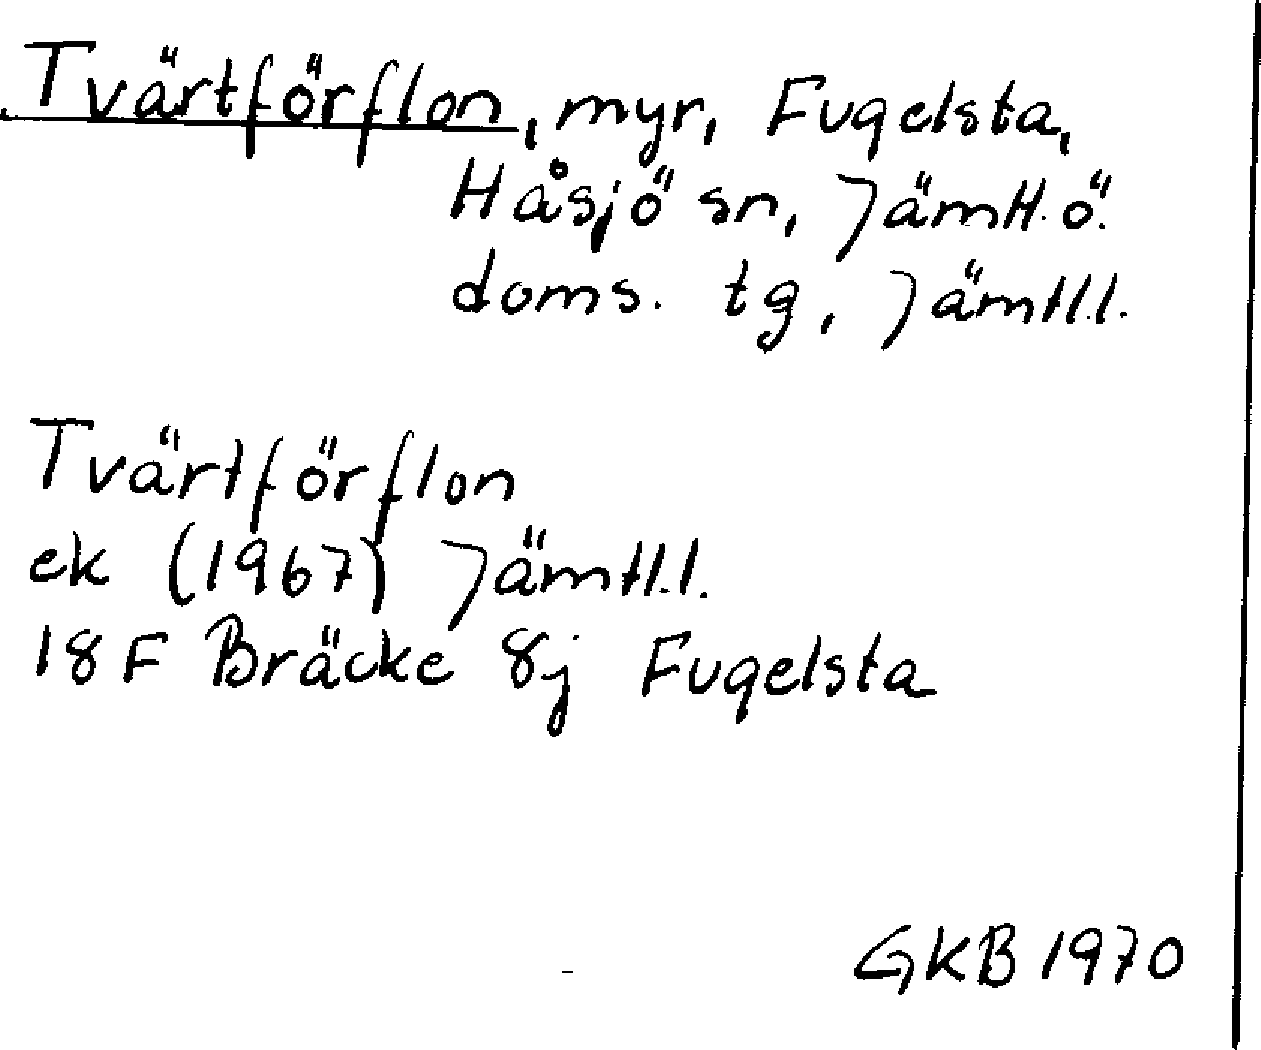 Tvärtförflon, myr, Fugelsta,
Håsjö sn, Jämtl. ö.
doms. tg, Jämtl.l.
Tvärtförflon
ek (1967) Jämtl.l.
18F Bräcke 8j Fugelsta
GKB 1970